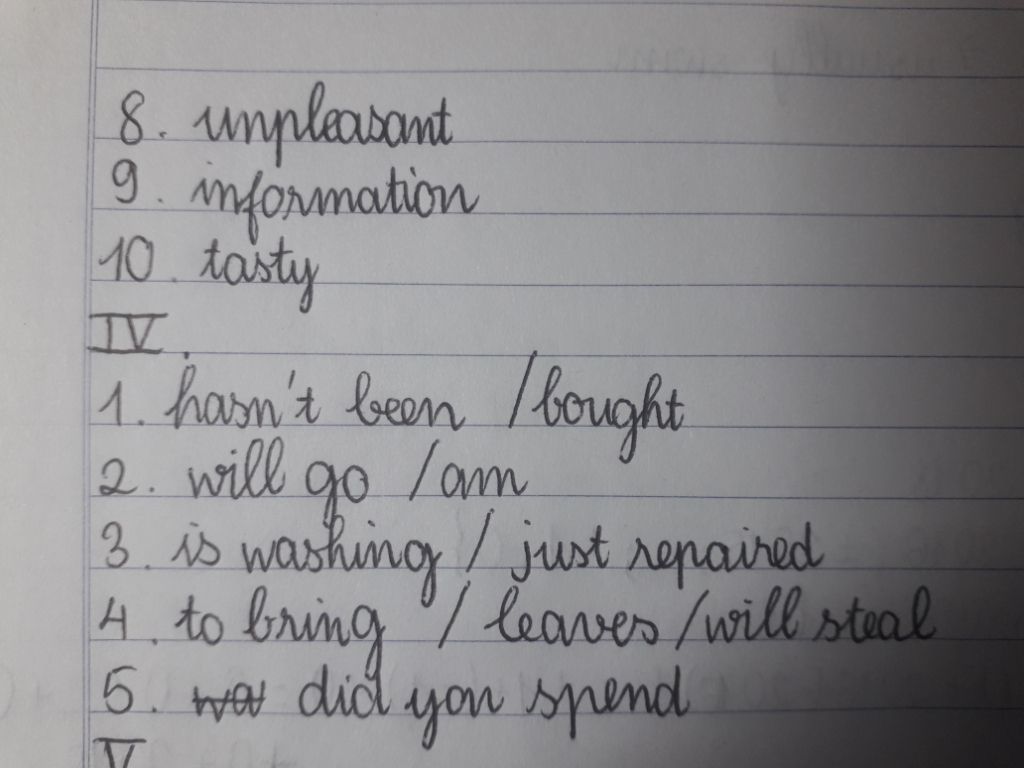 8. unpleasant
9. information
10. tasty
IV.
1. hasn't been / bought
2. will go / am
3. is washing / just repaired
4. to bring / leaves / will steal
5. did you spend
V